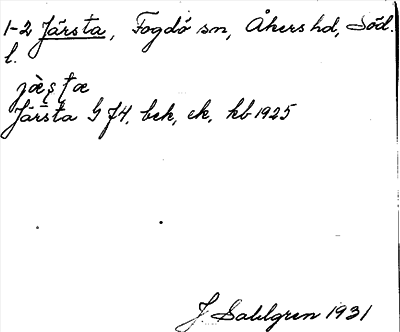 1-2 Järsta, Fogdö sn, Åkers hd, Söd.
l.
Järsta G J4, bek, ek, kb 1925
J Sahlgren 1931